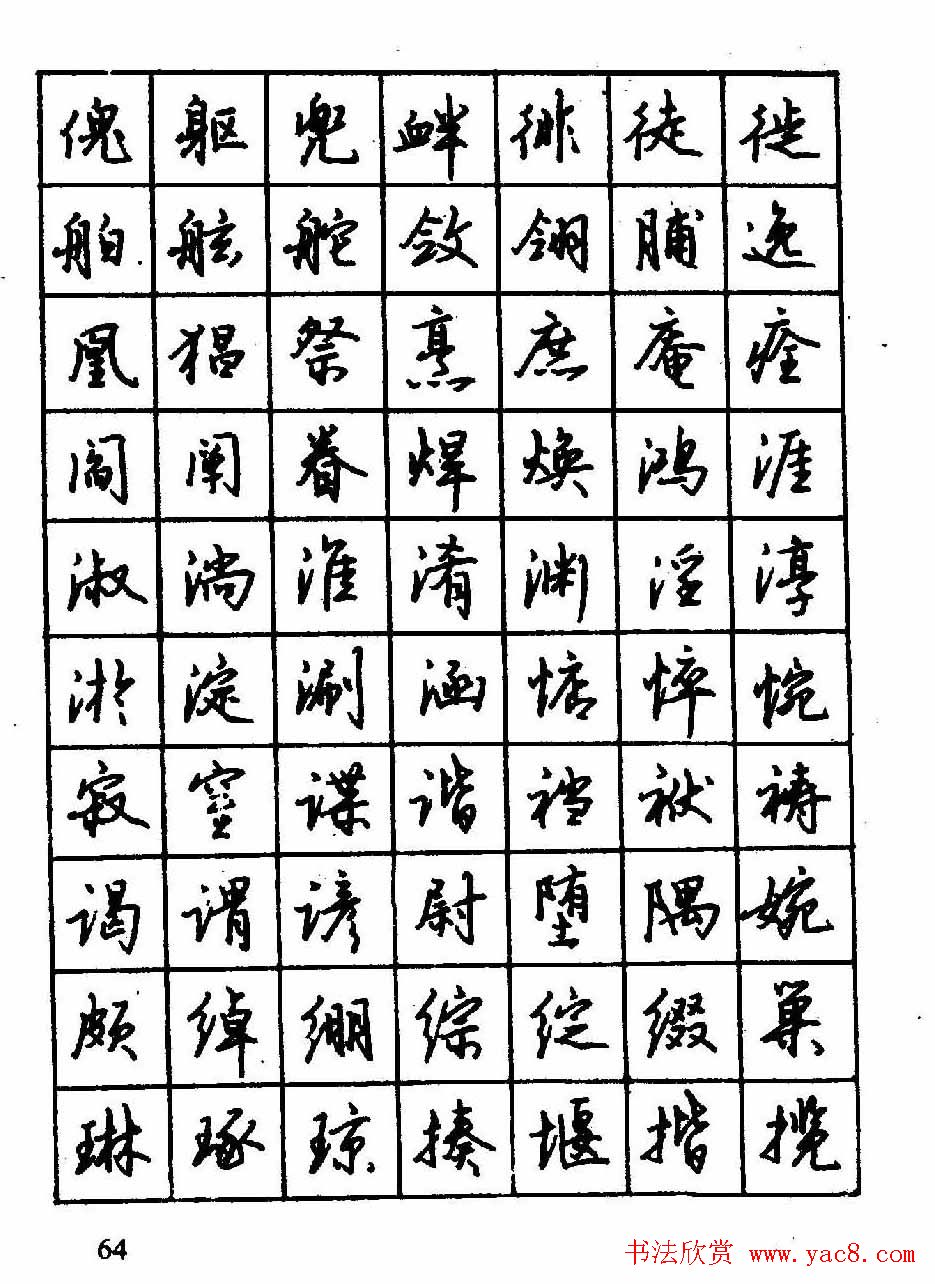 傀 躯 兜 衅 徘 徒 徙
舶 舷 舵 敛 翎 脯 逸
凰 猖 祭 烹 庶 庵 痊
阎 阐 眷 焊 焕 鸿 涯
淑 淌 淮 淆 渊 淫 淳
淤 淀 涮 涵 惦 悴 惋
寂 窒 谍 谐 裆 袱 祷
谒 谓 谚 尉 堕 隅 婉
颇 绰 绷 综 绽 缀 巢
琳 琢 琼 揍 堰 揩 揽
64
书法欣赏 www.yac8.com